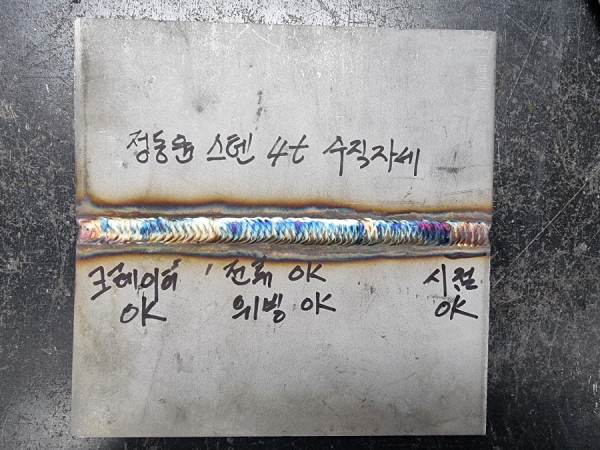 정동윤 스텐 4t 수직자세
크레이터 OK
전류 OK
위빙 OK
시점 OK